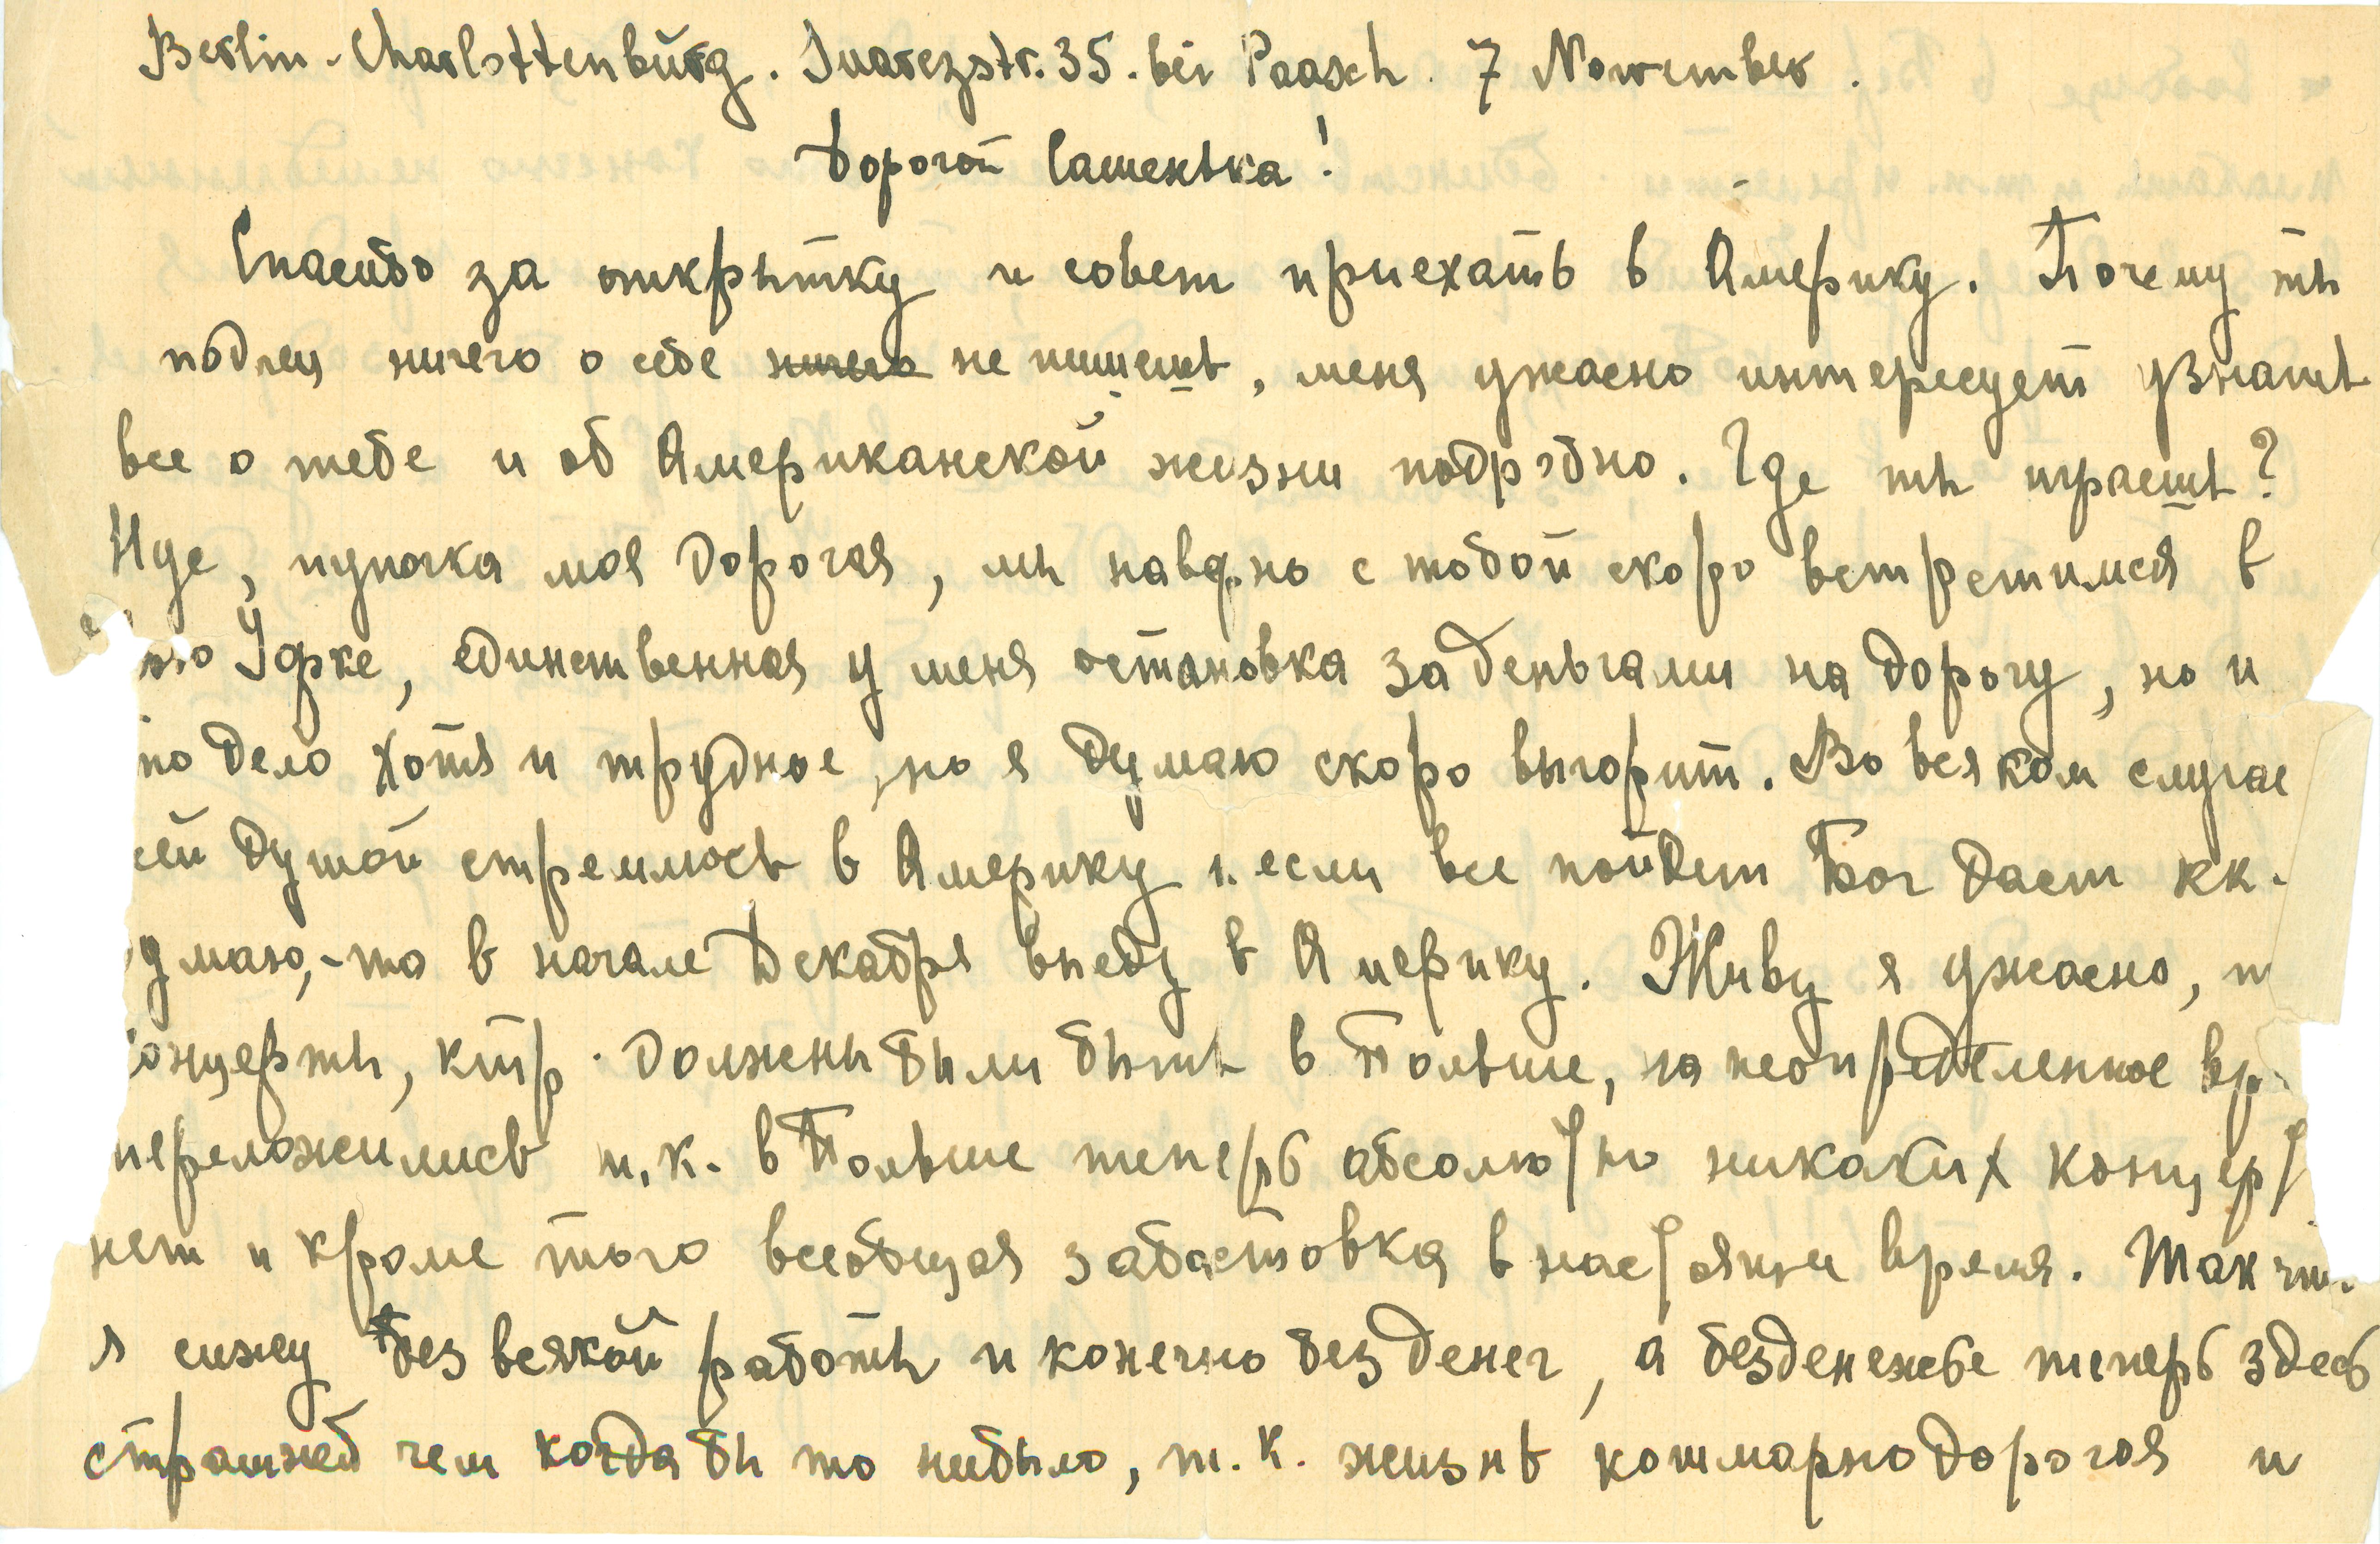 Berlin-Charlottenburg. Suarezstr. 35. bei Paasch. 7 November.
Дорогой Сашенька!
Спасибо за открытку и совет приехать в Америку. Почему ты
подлец ничего о себе ничего не пишешь, меня ужасно интересует узнать
все о тебе и об Американской жизни подробно. Где ты играешь?
Иде, пупочка моя дорогая, мы наверно с тобой скоро встретимся в
ью Йорке, единственная у меня остановка за деньгами на дорогу, но и
то дело хотя и трудное, но я думаю скоро выгорит. Во всяком случае
сей душой стремлюсь в Америку и если все пойдет Бог даст кк.
думаю,-то в начале Декабря выеду в Америку. Живу я ужасно, т
концерты, ктр. должны были быть в Польше, на неопределенное вр
переложились т.к. в Польше теперь абсолютно никаких концерт
нет и кроме того всеобщая забастовка в настоящи время. Так что
я сижу без всякой работы и конечно без денег, а безденежье теперь здесь
страшней чем когда бы то нибыло, т.к. жизнь кошмарно дорогая и